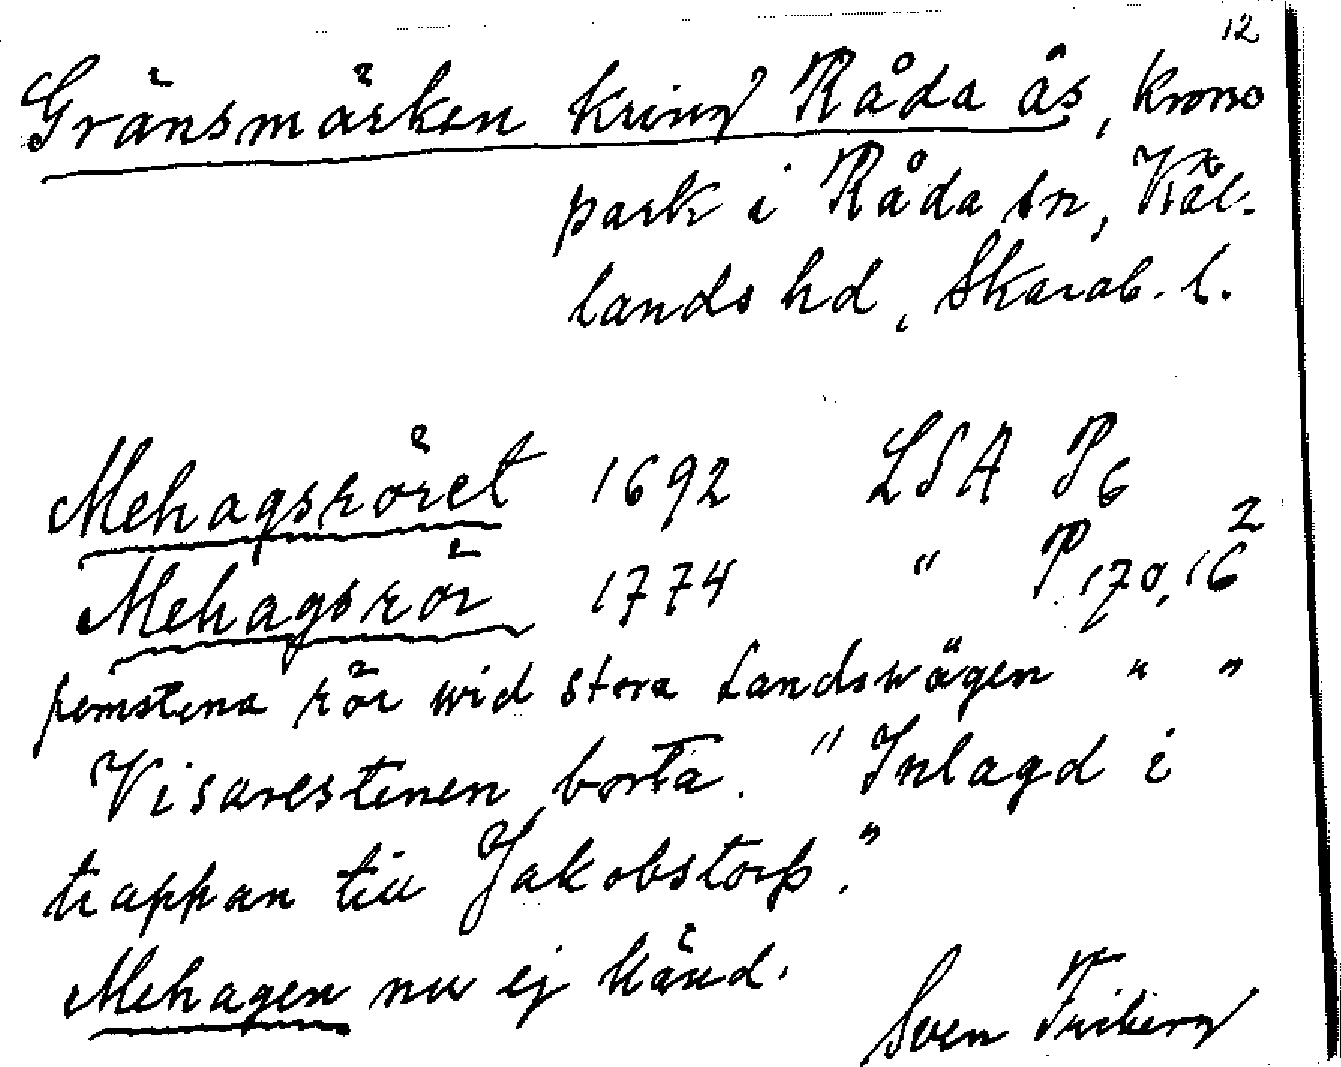 12
Gränsmärken kring Råda ås, krono
park i Råda sn, Kål-
lands hd, Skarab. l.
Mehagsröret 1692 LSA P6
Mehagsrör 1774 " P170,16²
femstena rör wid stora Landswägen " "
Visarestenen borta. "Inlagd i
trappan till Jakobstorp."
Mehagen nu ej känd.
Sven Friberg